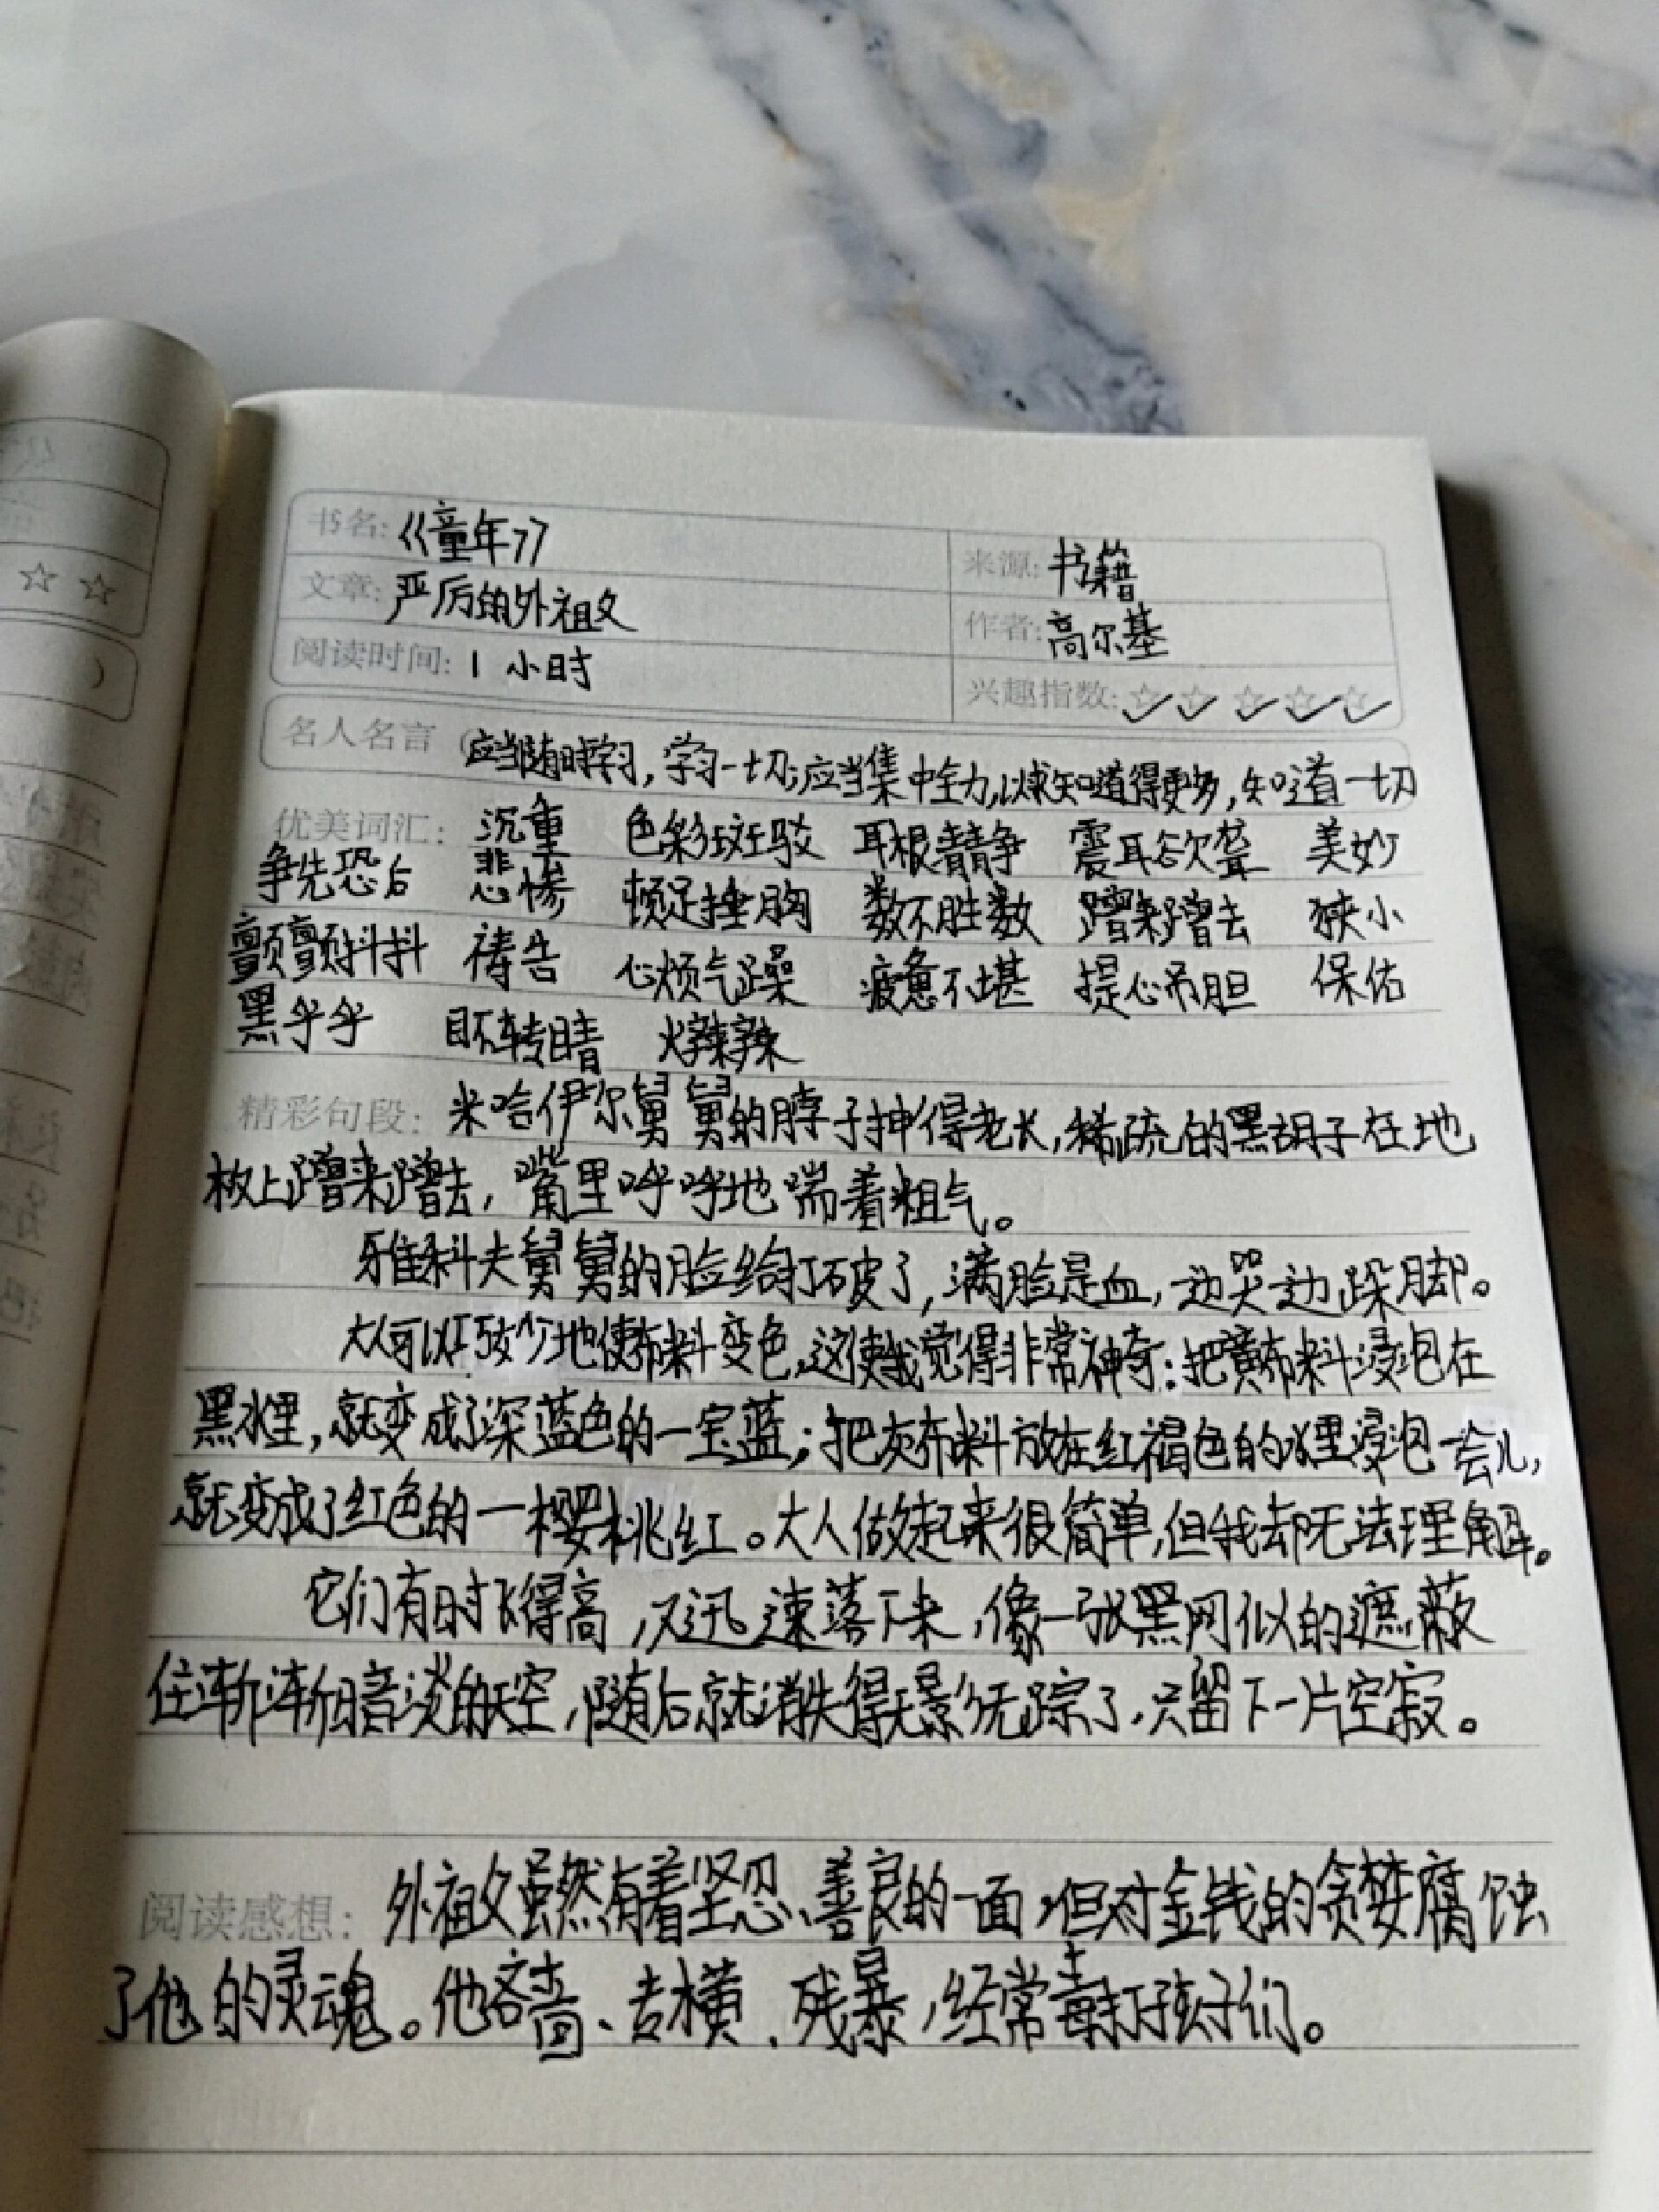 书名:《童年》
来源:书籍
文章:严厉的外祖父
作者:高尔基
阅读时间:1小时
兴趣指数:☆☆☆☆☆
名人名言(应当随时学习,学习一切;应当集中全力,以求知道得更多,知道一切
优美词汇: 沉重 色彩斑驳 耳根清静 震耳欲聋 美妙
争先恐后 悲惨 顿足捶胸 数不胜数 蹭来蹭去 狭小
颤颤抖抖 祷告 心烦气躁 疲惫不堪 提心吊胆 保佑
黑乎乎 目不转睛 火辣辣
精彩句段: 米哈伊尔舅舅的脖子抻得老长,稀疏的黑胡子在地
板上蹭来蹭去,嘴里呼呼地喘着粗气。
雅科夫舅舅的脸给打破了,满脸是血,边哭边跺脚。
大人可以巧妙地使布料变色,这使我觉得非常神奇:把黄布料浸泡在
黑水里,就变成了深蓝色的一宝蓝;把灰布料放在红褐色的水里浸泡一会儿,
就变成了红色的一樱桃红。大人做起来很简单,但我却无法理解。
它们有时飞得高,又迅速落下来,像一张黑网似的遮蔽
住渐渐暗淡的天空,随后就消失得无影无踪了,只留下一片空寂。
阅读感想: 外祖父虽然有着坚忍、善良的一面,但对金钱的贪婪腐蚀
了他的灵魂。他吝啬、专横、残暴,经常毒打孩子们。